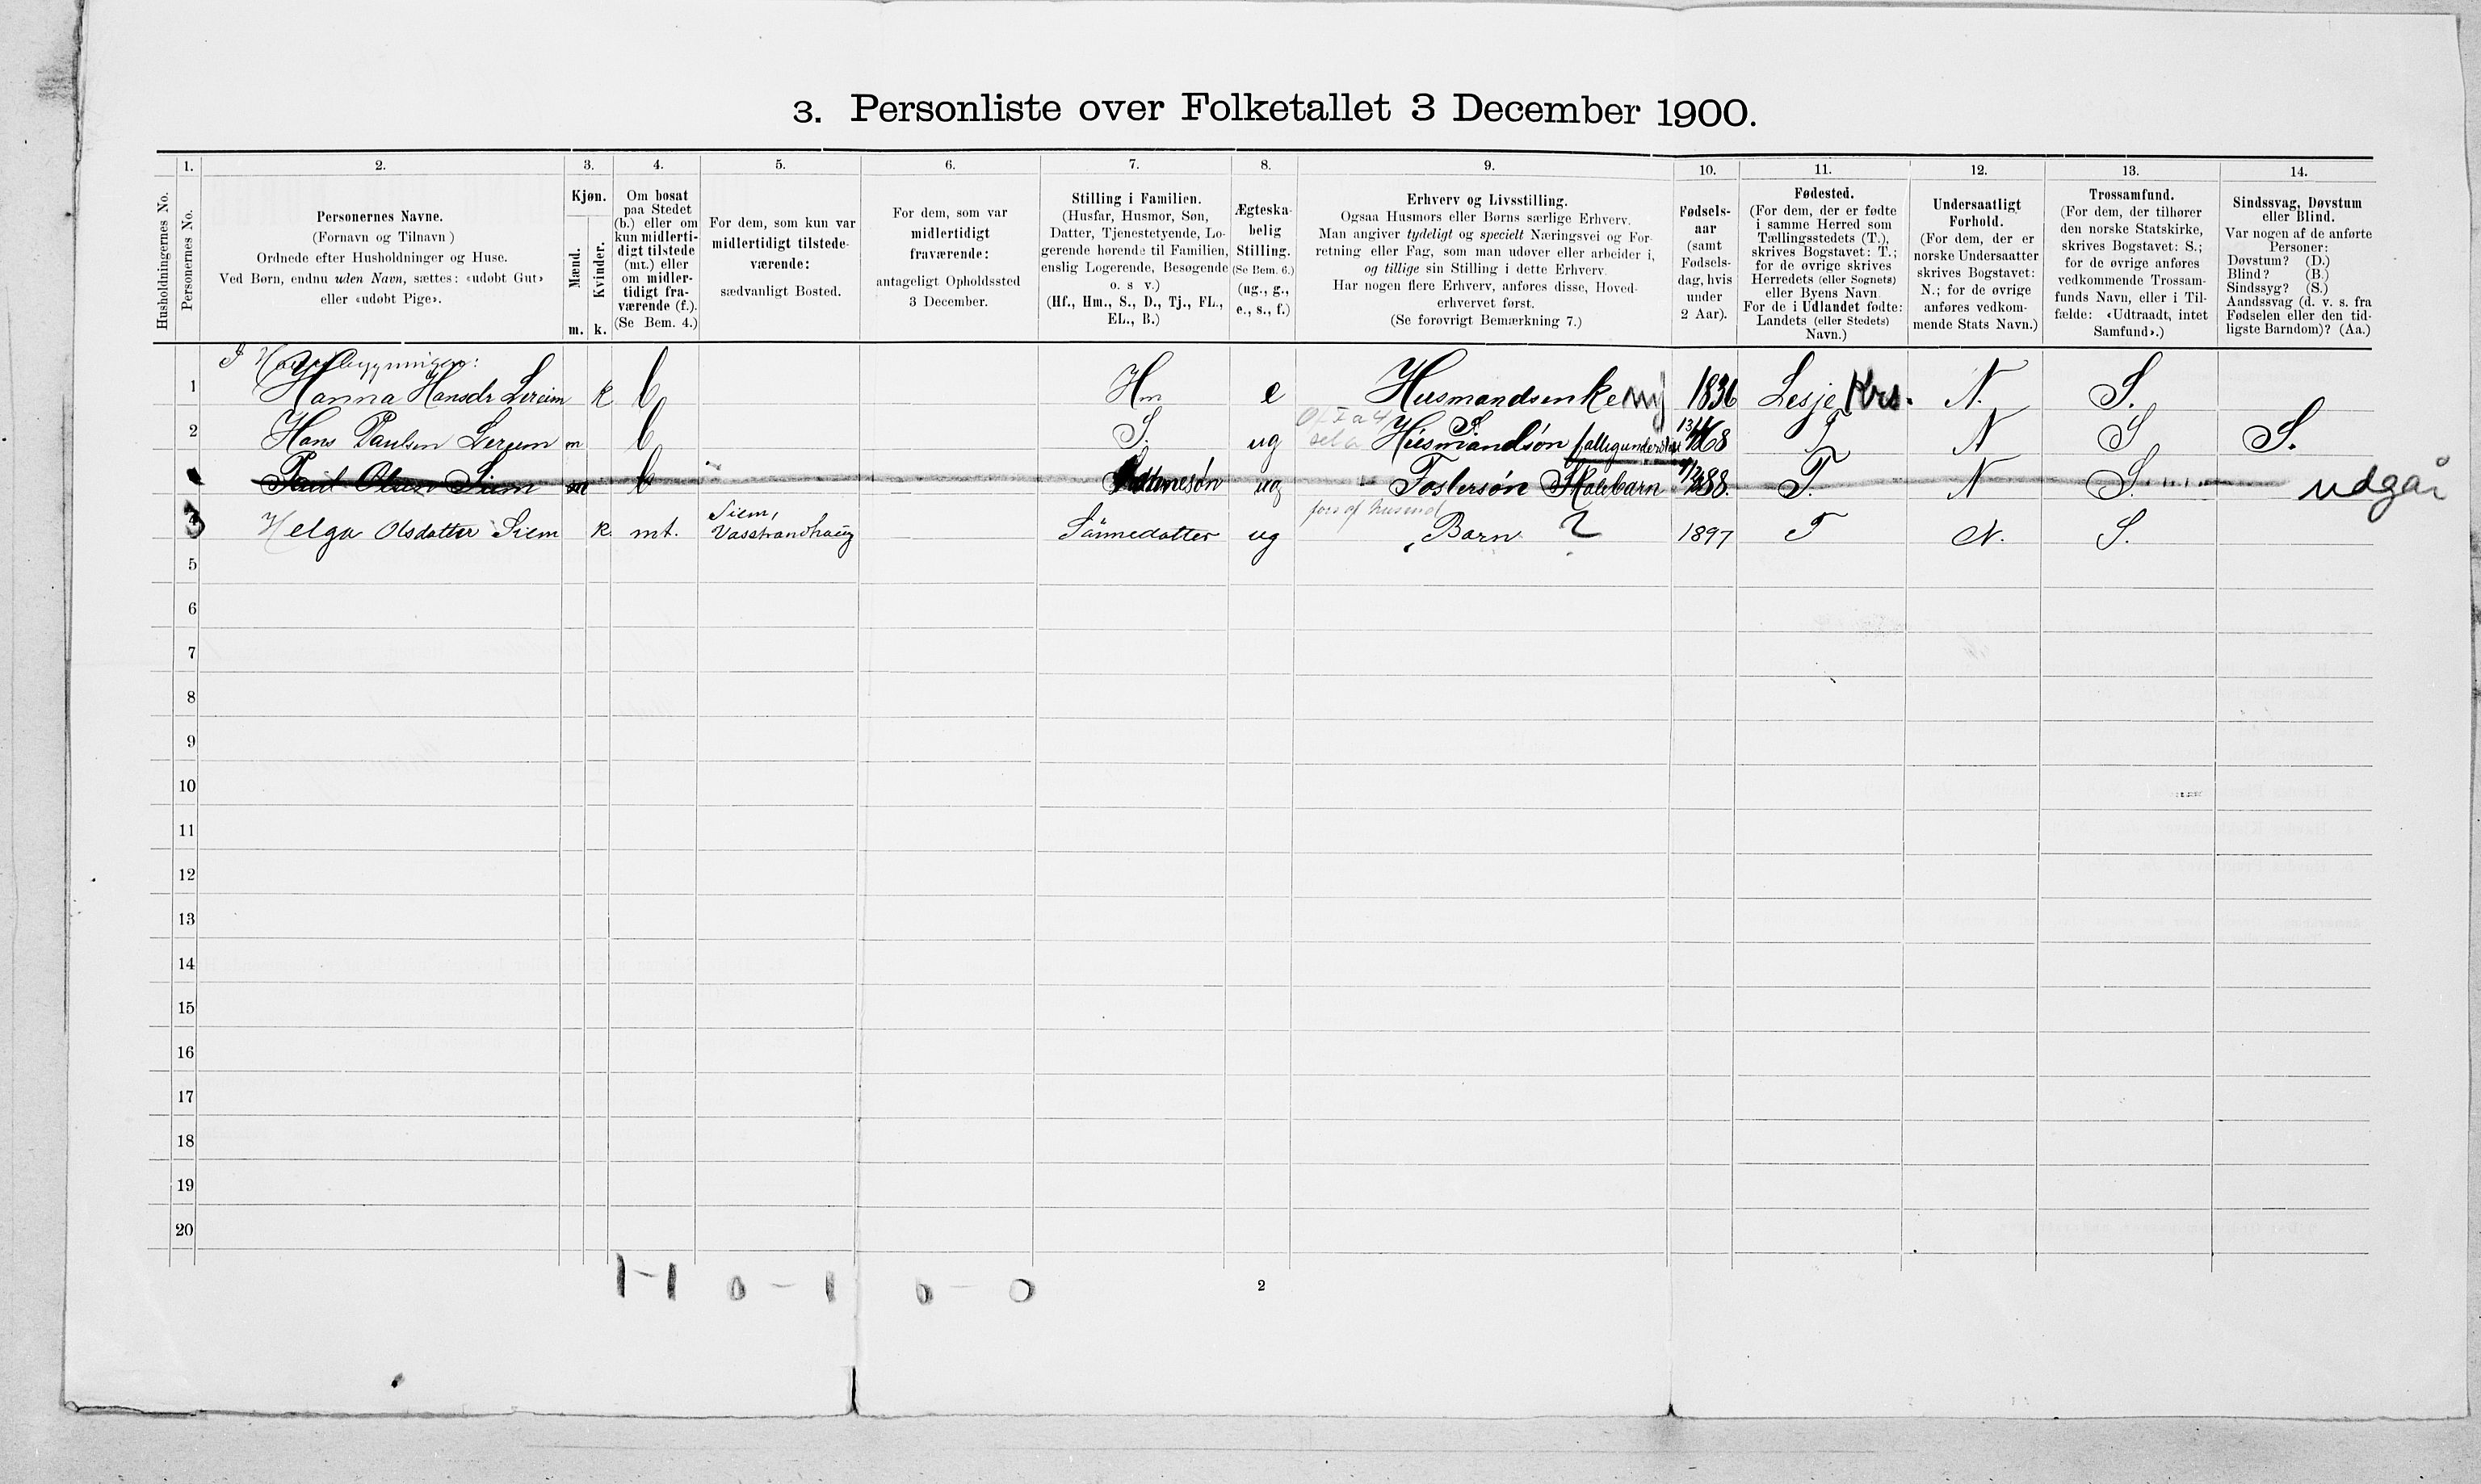 3. Personliste over Folketallet 3 December 1900.
1. 2. 3. 4. 5. 6. 7. 8. 9. 10. 11. 12. 13. 14.
Husholdningernes No.
Personernes No.
Personernes Navne.
(Fornavn og Tilnavn)
Ordnede efter Husholdninger og Huse.
Ved Børn, endnu uden Navn, sættes: «udøbt Gut»
eller «udøbt Pige».
Kjøn.
Mænd.
Kvinder.
m. k.
Om bosat
paa Stedet
(b.) eller om
kun midlerti-
digt tilstede
(mt.) eller
om midler-
tidigt fra-
værende (f.).
(Se Bem. 4.)
For dem, som kun var
midlertidigt tilstede-
værende:
sædvanligt Bosted.
For dem, som var
midlertidigt
fraværende:
antageligt Opholdssted
3 December.
Stilling i Familien.
(Husfar, Husmor, Søn,
Datter, Tjenestetyende, Lo-
gerende hørende til Familien,
enslig Logerende, Besøgende
o. s v.)
(Hf., Hm., S., D., Tj., FL.,
EL., B.)
Ægteska-
belig
Stilling.
(Se Bem. 6.)
(ug., g.,
e., s., f.)
Erhverv og Livsstilling.
Ogsaa Husmors eller Børns særlige Erhverv.
Man angiver tydeligt og specielt Næringsvei og For-
retning eller Fag, som man udøver eller arbeider i,
og tillige sin Stilling i dette Erhverv.
Har nogen flere Erhverv, anføres disse, Hoved-
erhvervet først.
(Se forøvrigt Bemærkning 7.)
Fødsels-
aar
(samt
Fødsels-
dag, hvis
under
2 Aar).
Fødested.
(For dem, der er fødte
i samme Herred som
Tællingsstedets (T.),
skrives Bogstavet: T.;
for de øvrige skrives
Herredets (eller Sognets)
eller Byens Navn.
For de i Udlandet fødte:
Landets (eller Stedets)
Navn.)
Undersaatligt
Forhold.
(For dem, der er
norske Undersaatter
skrives Bogstavet:
N.; for de øvrige
anføres vedkom-
mende Stats Navn.)
Trossamfund.
(For dem, der tilhører
den norske Statskirke,
skrives Bogstavet: S.;
for de øvrige anføres
vedkommende Trossam-
funds Navn, eller i Til-
fælde: «Udtraadt, intet
Samfund».)
Sindssvag, Døvstum
eller Blind.
Var nogen af de anførte
Personer:
Døvstum? (D.)
Blind? (B.)
Sindssyg? (S.)
Aandssvag (d. v. s. fra
Fødselen eller den tid-
ligste Barndom)? (Aa.)
I Hovedbygningen:
1 Hanna Hansdr Lereim k b Hm e Husmandsenke 1836 Lesje Krs. N. S.
2 Hans Paulsen Lereim m b S. ug Husmandsøn fattigunderst. 68 T N S S.
Paul Olsen Siem m b Sønnesøn ug - Fostersøn Skolebarn 88. T. N S. udgår
3 Helga Olsdatter Siem k. mt. Siem, Vasstrandhaug Sønnedatter ug Barn 2 1897 T N. S.
5
6
7
8
9
10
11
12
13
14
15
16
17
18
19
20
1-1 0-1 0-0
2